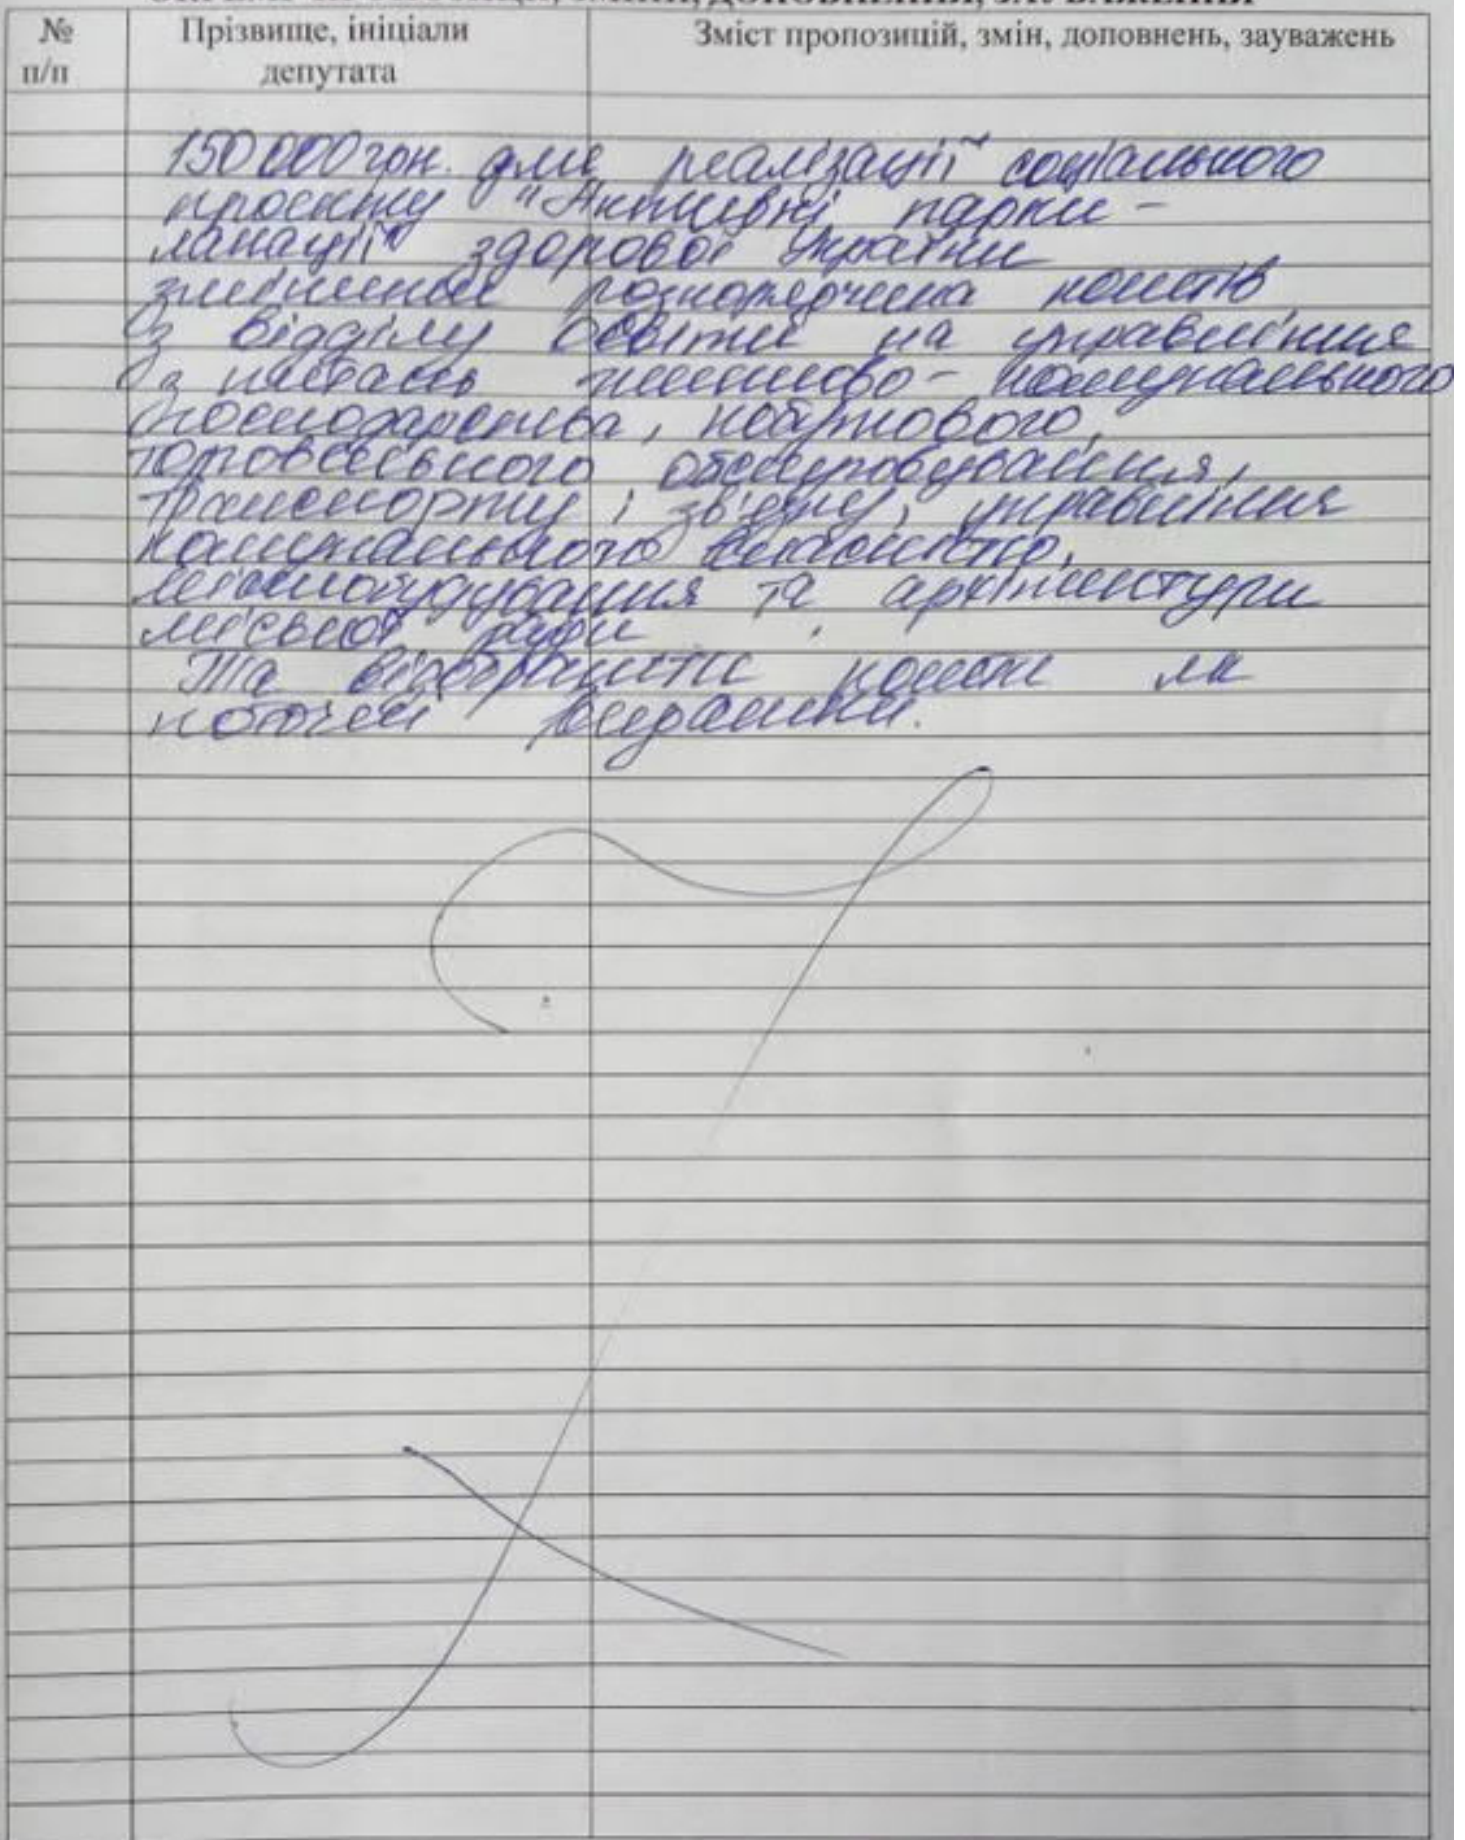 ДОПОВНЕННЯ, ЗАУВАЖЕННЯ
№ п/п
Прізвище, ініціали депутата
Зміст пропозицій, змін, доповнень, зауважень
150 000 грн. для реалізації соціального
проєкту "Активні парки -
локації здорової України
змінивши розпорядника коштів
з відділу освіти на управління
з питань житлово-комунального
господарства, побутового,
торговельного обслуговування,
транспорту і зв'язку, управління
комунальною власністю,
містобудування та архітектури
міської ради
Та відобразити кошти на
поточні видатки.